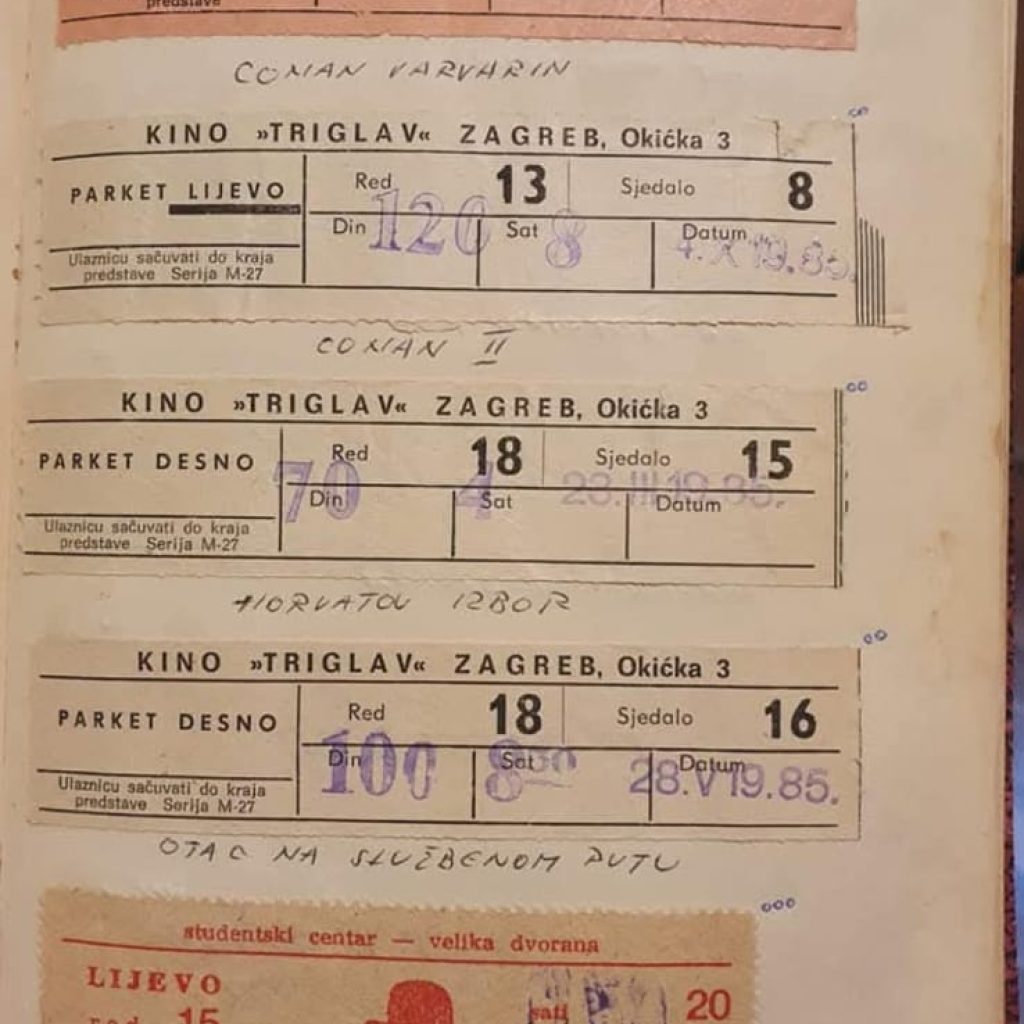 predstave
CONAN VARVARIN
KINO »TRIGLAV« ZAGREB, Okićka 3
PARKET LIJEVO
Red 13 Sjedalo 8
Din 120 Sat 8 Datum 4. X 19.85
Ulaznicu sačuvati do kraja
predstave Serija M-27
CONAN II
KINO »TRIGLAV« ZAGREB, Okićka 3
PARKET DESNO
Red 18 Sjedalo 15
Din 70 Sat 4 Datum 28.III 19.85.
Ulaznicu sačuvati do kraja
predstave Serija M-27
HORVATOV IZBOR
KINO »TRIGLAV« ZAGREB, Okićka 3
PARKET DESNO
Red 18 Sjedalo 16
Din 100 Sat 8³⁰ Datum 28.V 19.85.
Ulaznicu sačuvati do kraja
predstave Serija M-27
OTAC NA SLUŽBENOM PUTU
studentski centar — velika dvorana
LIJEVO
red 15 sati 20